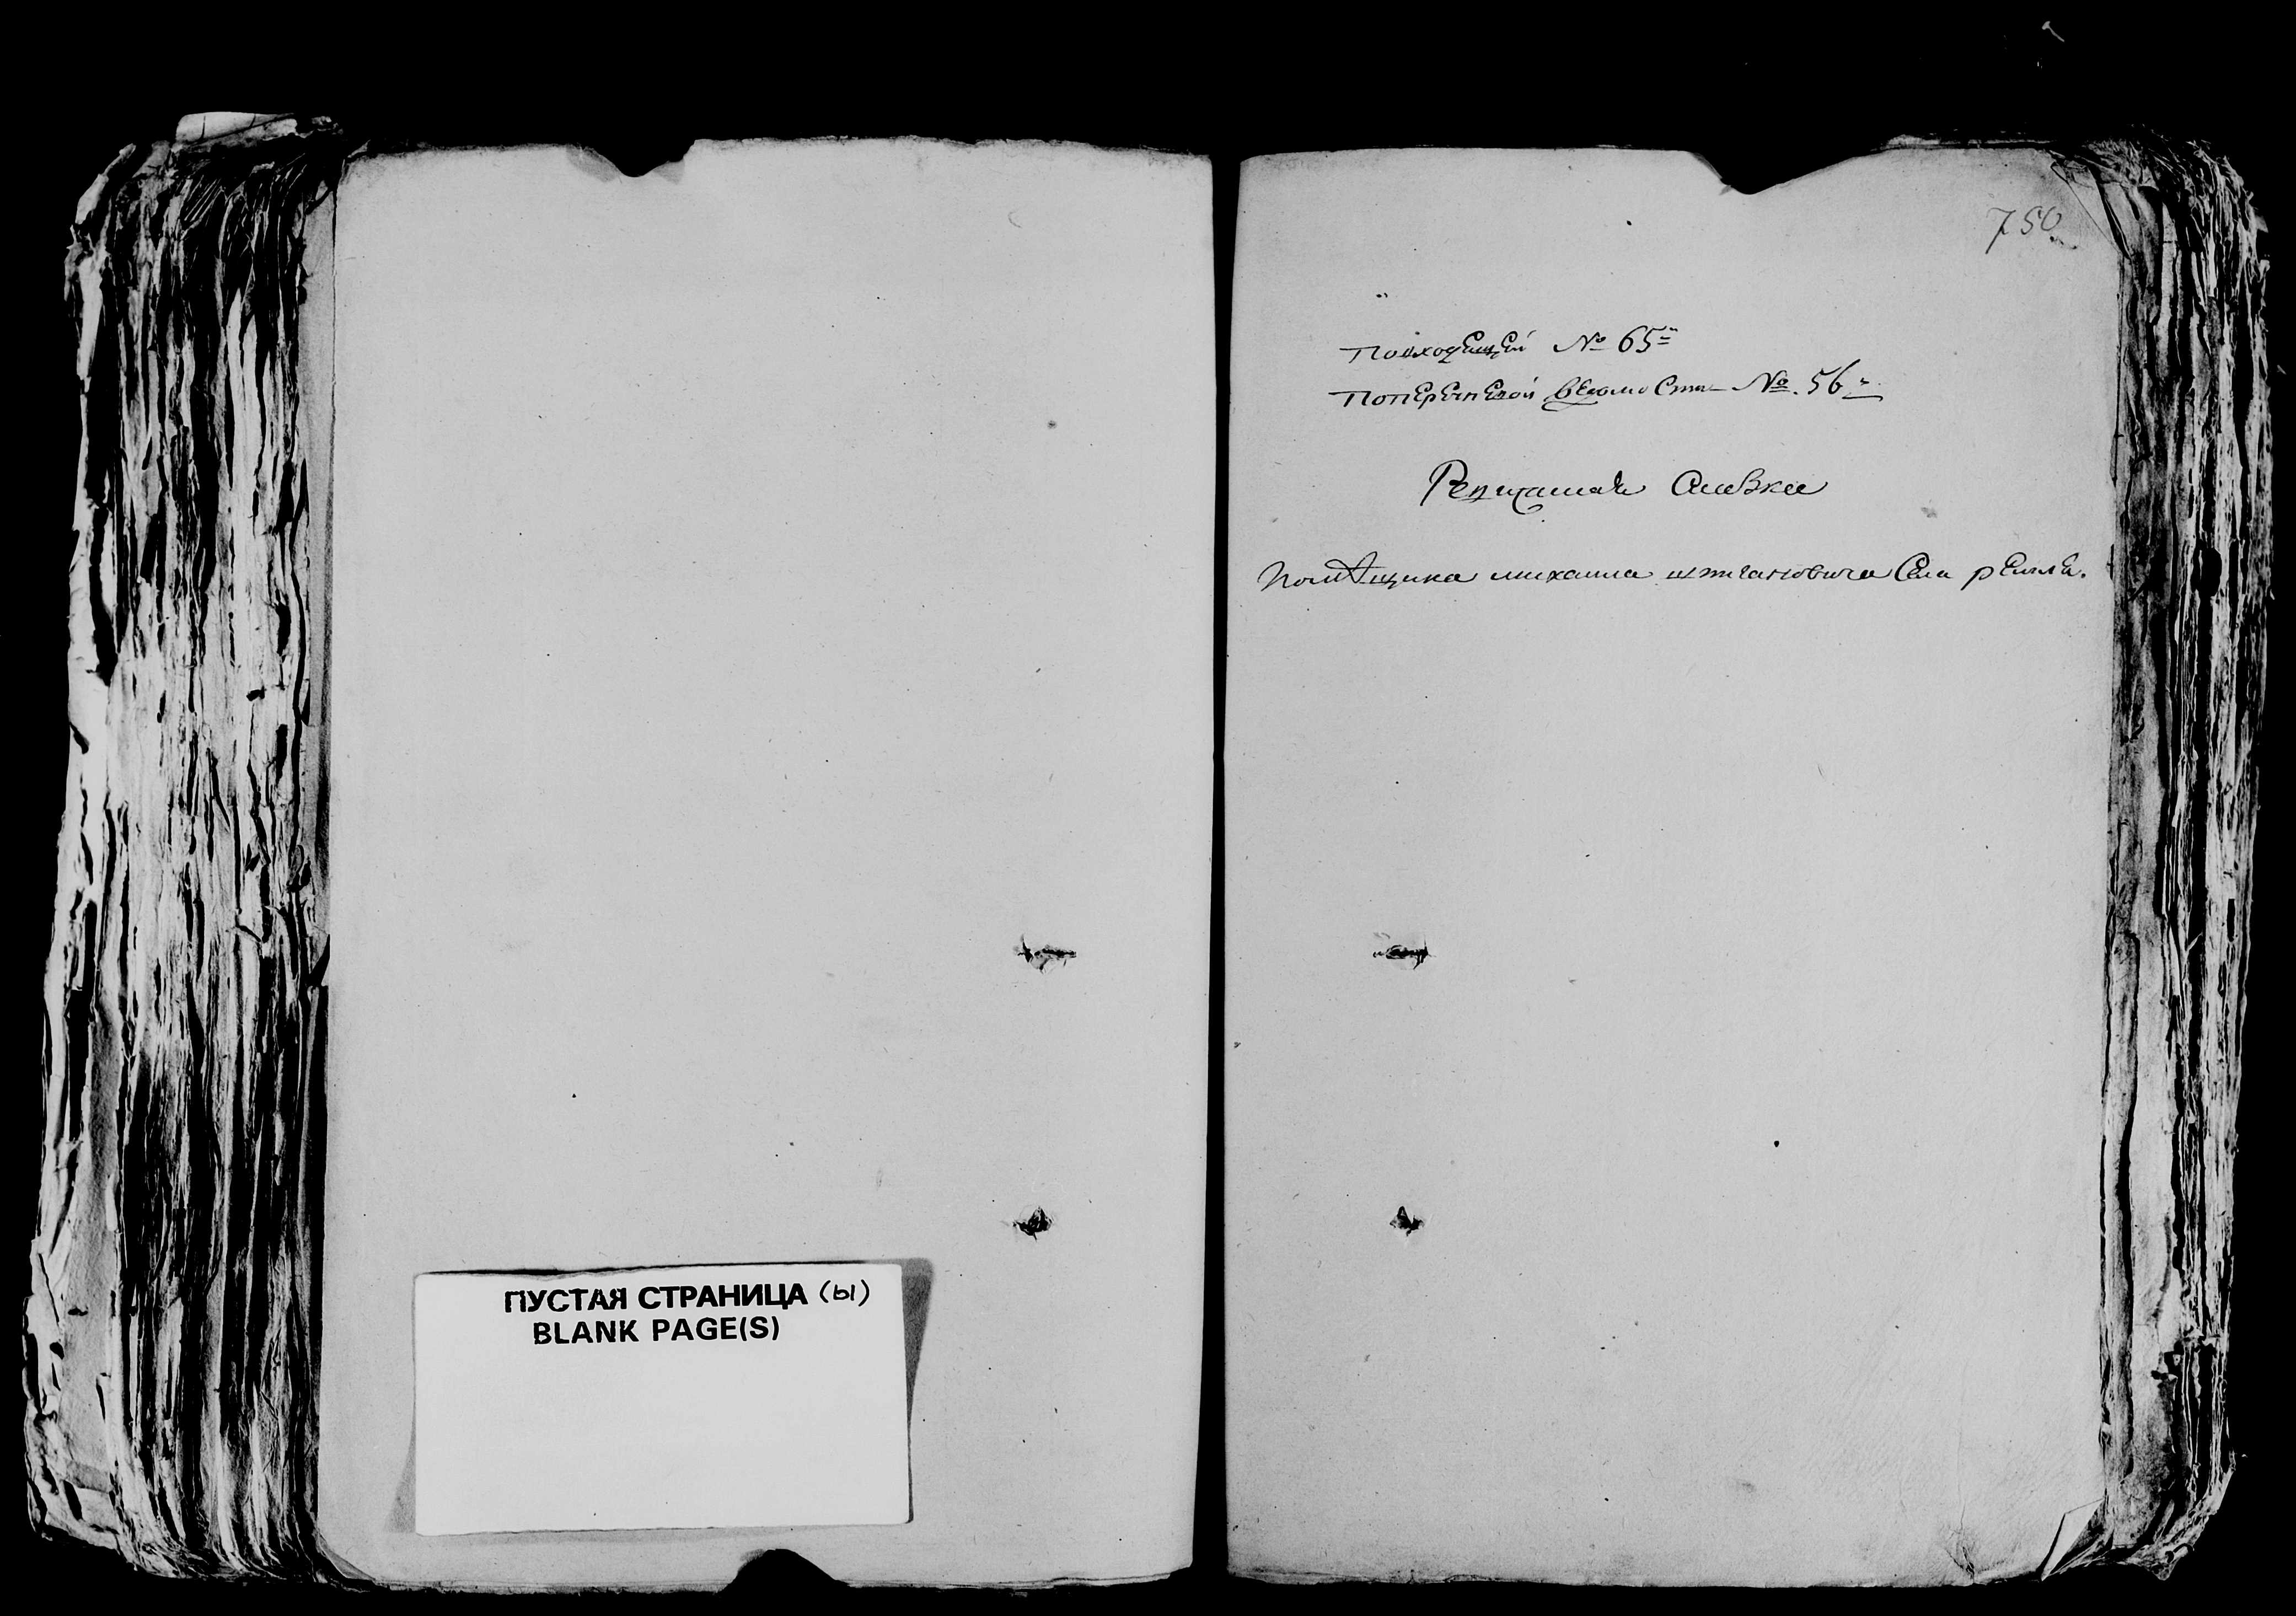 ПУСТАЯ СТРАНИЦА (ы)
BLANK PAGE(S)
750
Повходящей № 65
Поперечневой ведомости № 56
Ревизская Сказка
Помѣщика михаила Села